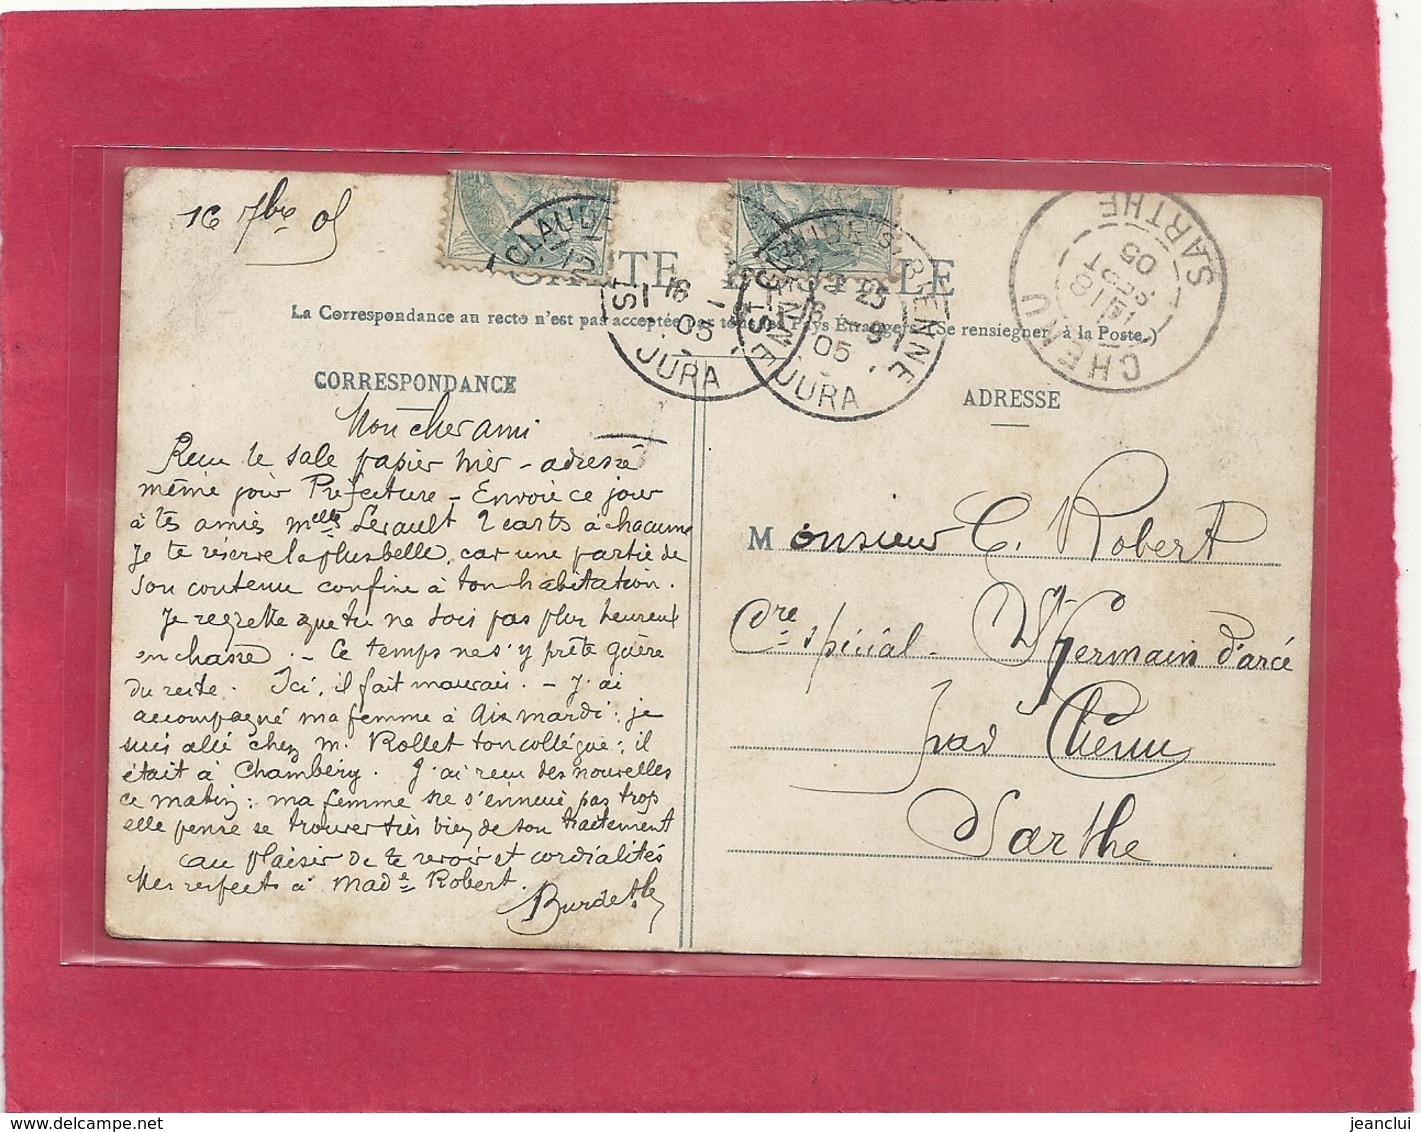 16 7bre 05
CARTE POSTALE
La Correspondance au recto n'est pas acceptée par tous les Pays Étrangers (Se renseigner à la Poste.)
CORRESPONDANCE
Mon cher ami
Recu le sale papier hier - adressé
même jour Préfecture - Envoie ce jour
à tes amies Melles Lerault 2 carts à chacune
Je te réserve la plus belle, car une partie de
son contenu confine à ton habitation.
Je regrette que tu ne sois pas plus heureux
en chasse. - Ce temps ne s'y prête guère
du reste. Ici, il fait mauvais. - J'ai
accompagné ma femme à Aix mardi : je
suis allé chez M. Rollet ton collégue ; il
était à Chambéry. J'ai recu des nouvelles
ce matin : ma femme ne s'ennuie pas trop
elle pense se trouver très bien de son traitement
au plaisir de te revoir et cordialités
Mes respects à Made Robert.
ADRESSE
Monsieur C. Robert
Cre spécial - St Germain d'arcé
par Chenu
Sarthe
ST CLAUDE JURA
16 05
ST CLAUDE S. BIENNE JURA
05
CHENU SARTHE
18 SEPT 05
jeanclui